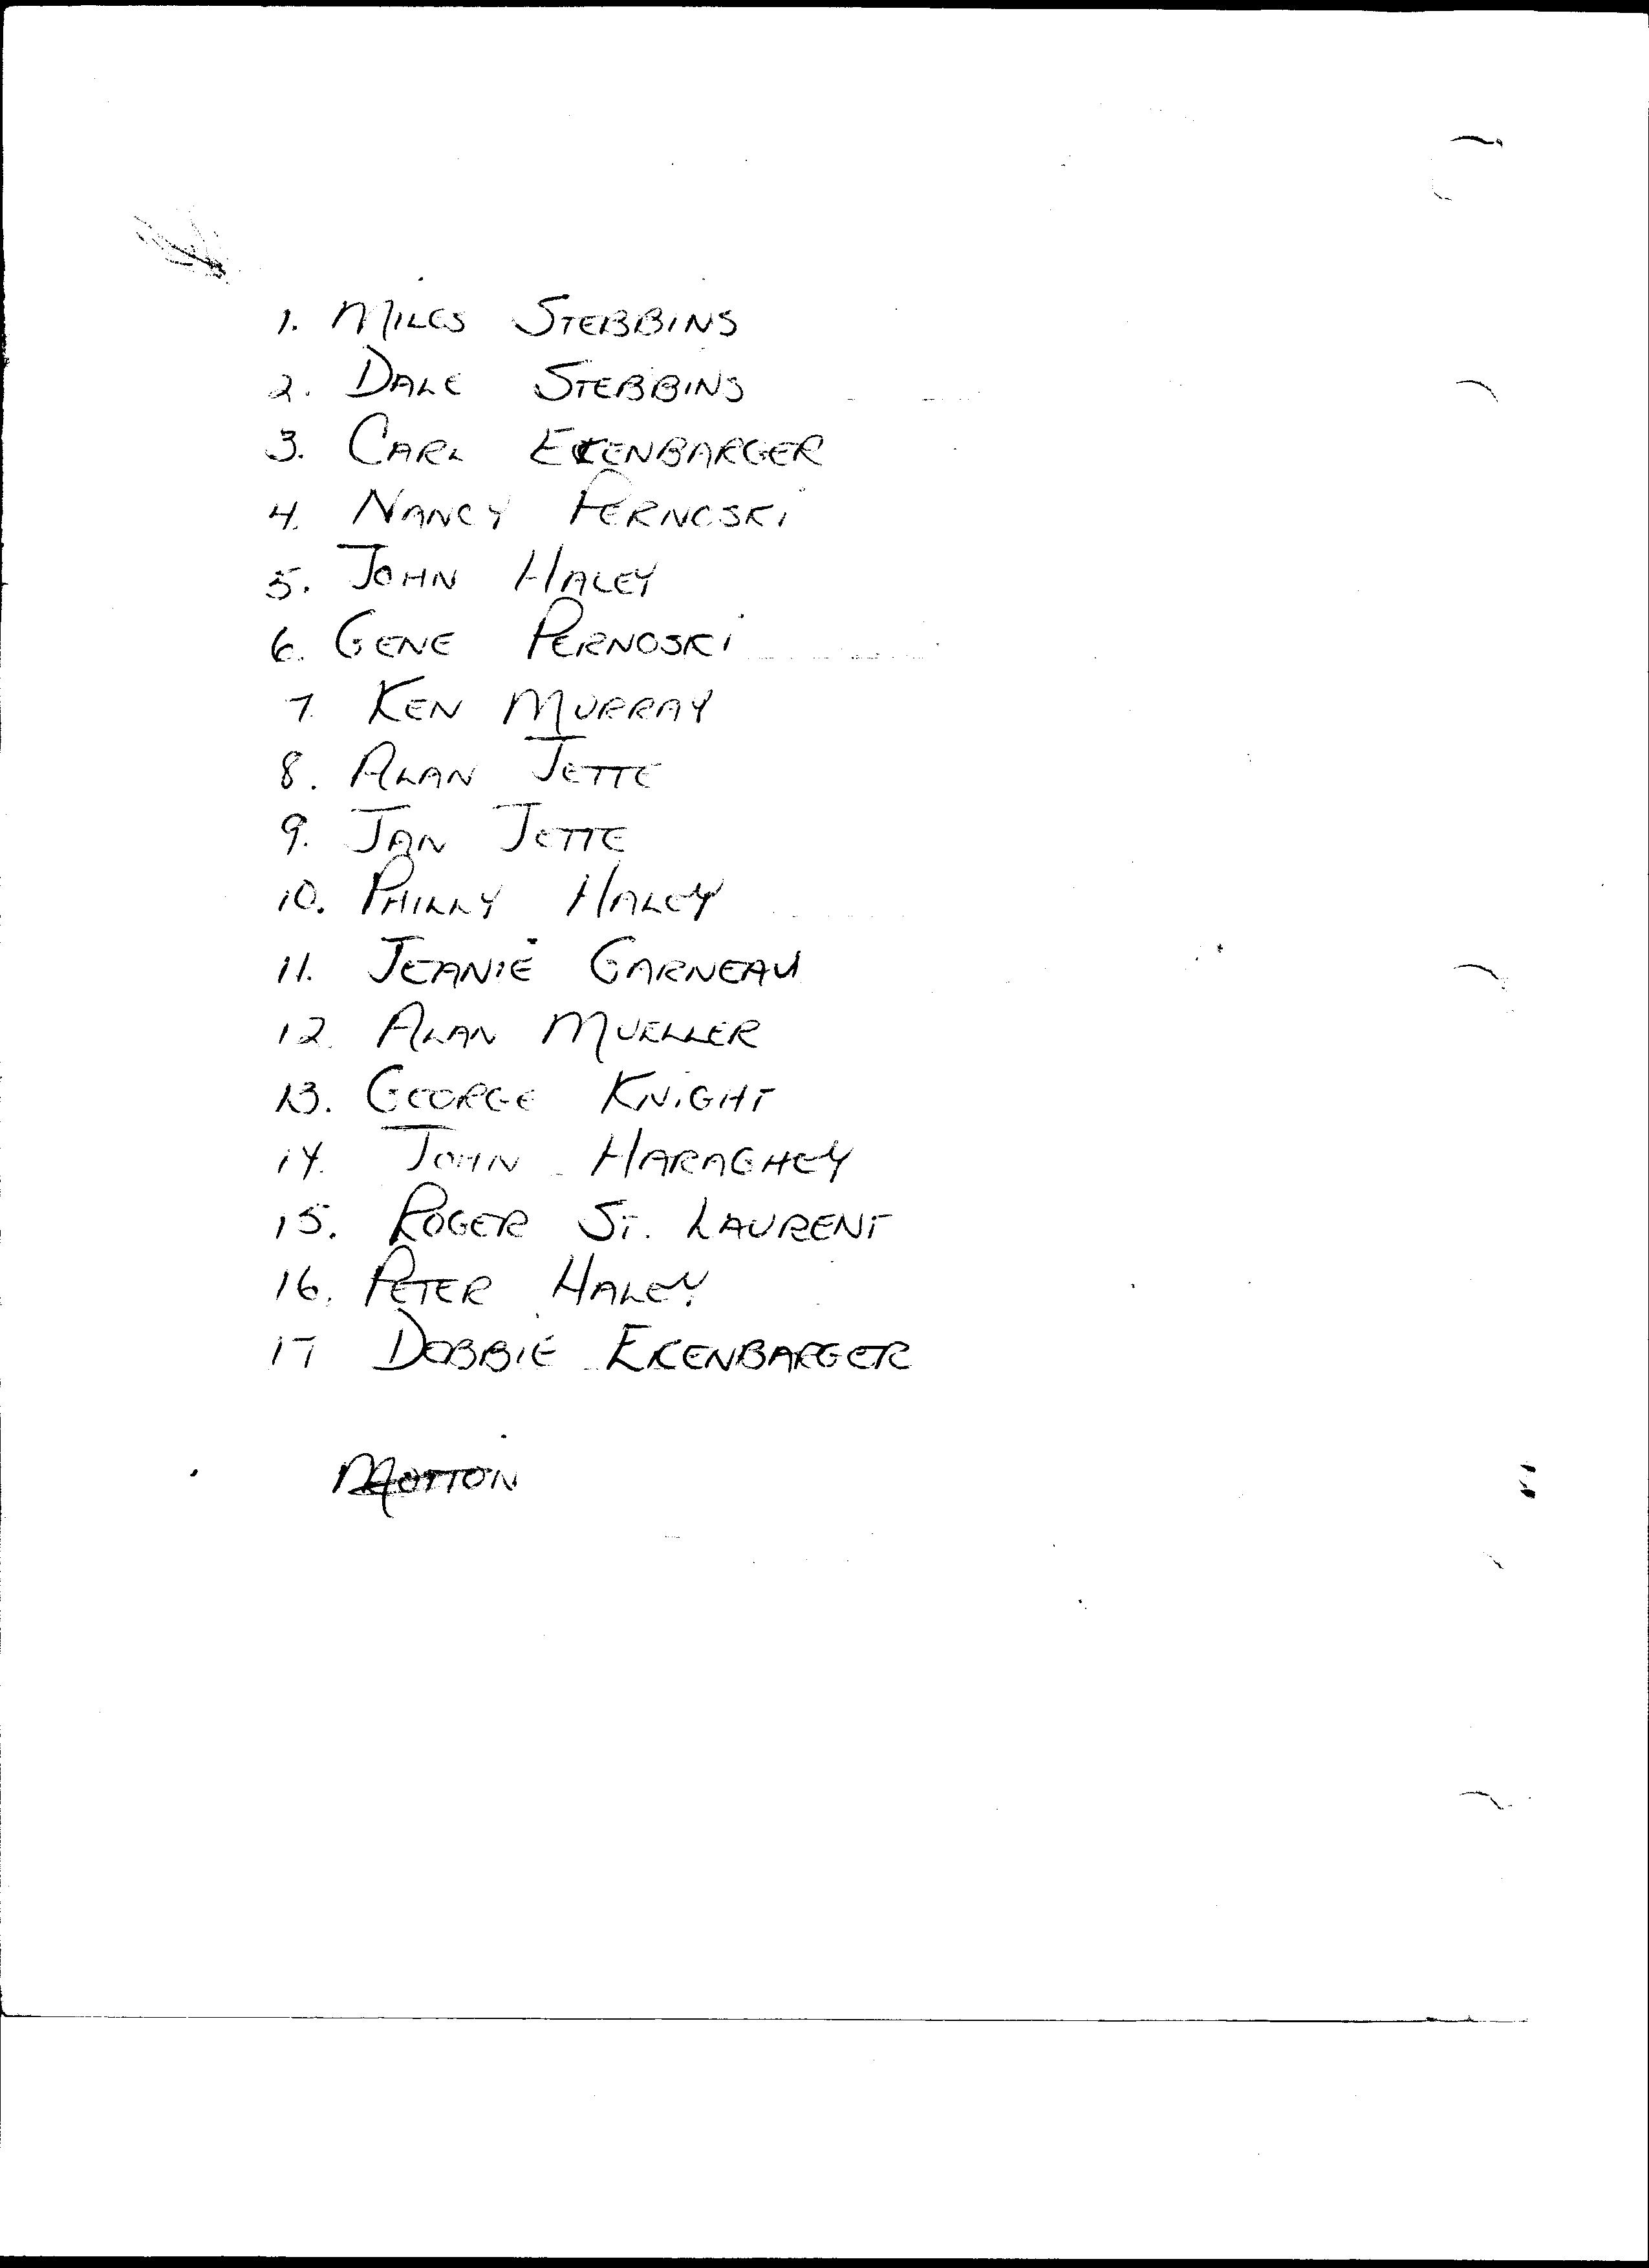 1. MILES STEBBINS
2. DALE STEBBINS
3. CARL EKENBARGER
4. NANCY PERNOSKI
5. JOHN HALEY
6. GENE PERNOSKI
7. KEN MURRAY
8. ALAN JETTE
9. JAN JETTE
10. PHILLY HALEY
11. JEANIE GARNEAU
12. ALAN MUELLER
13. GEORGE KNIGHT
14. JOHN HARAGHEY
15. ROGER ST. LAURENT
16. PETER HALEY
17 DEBBIE EKENBARGER
MOTTON